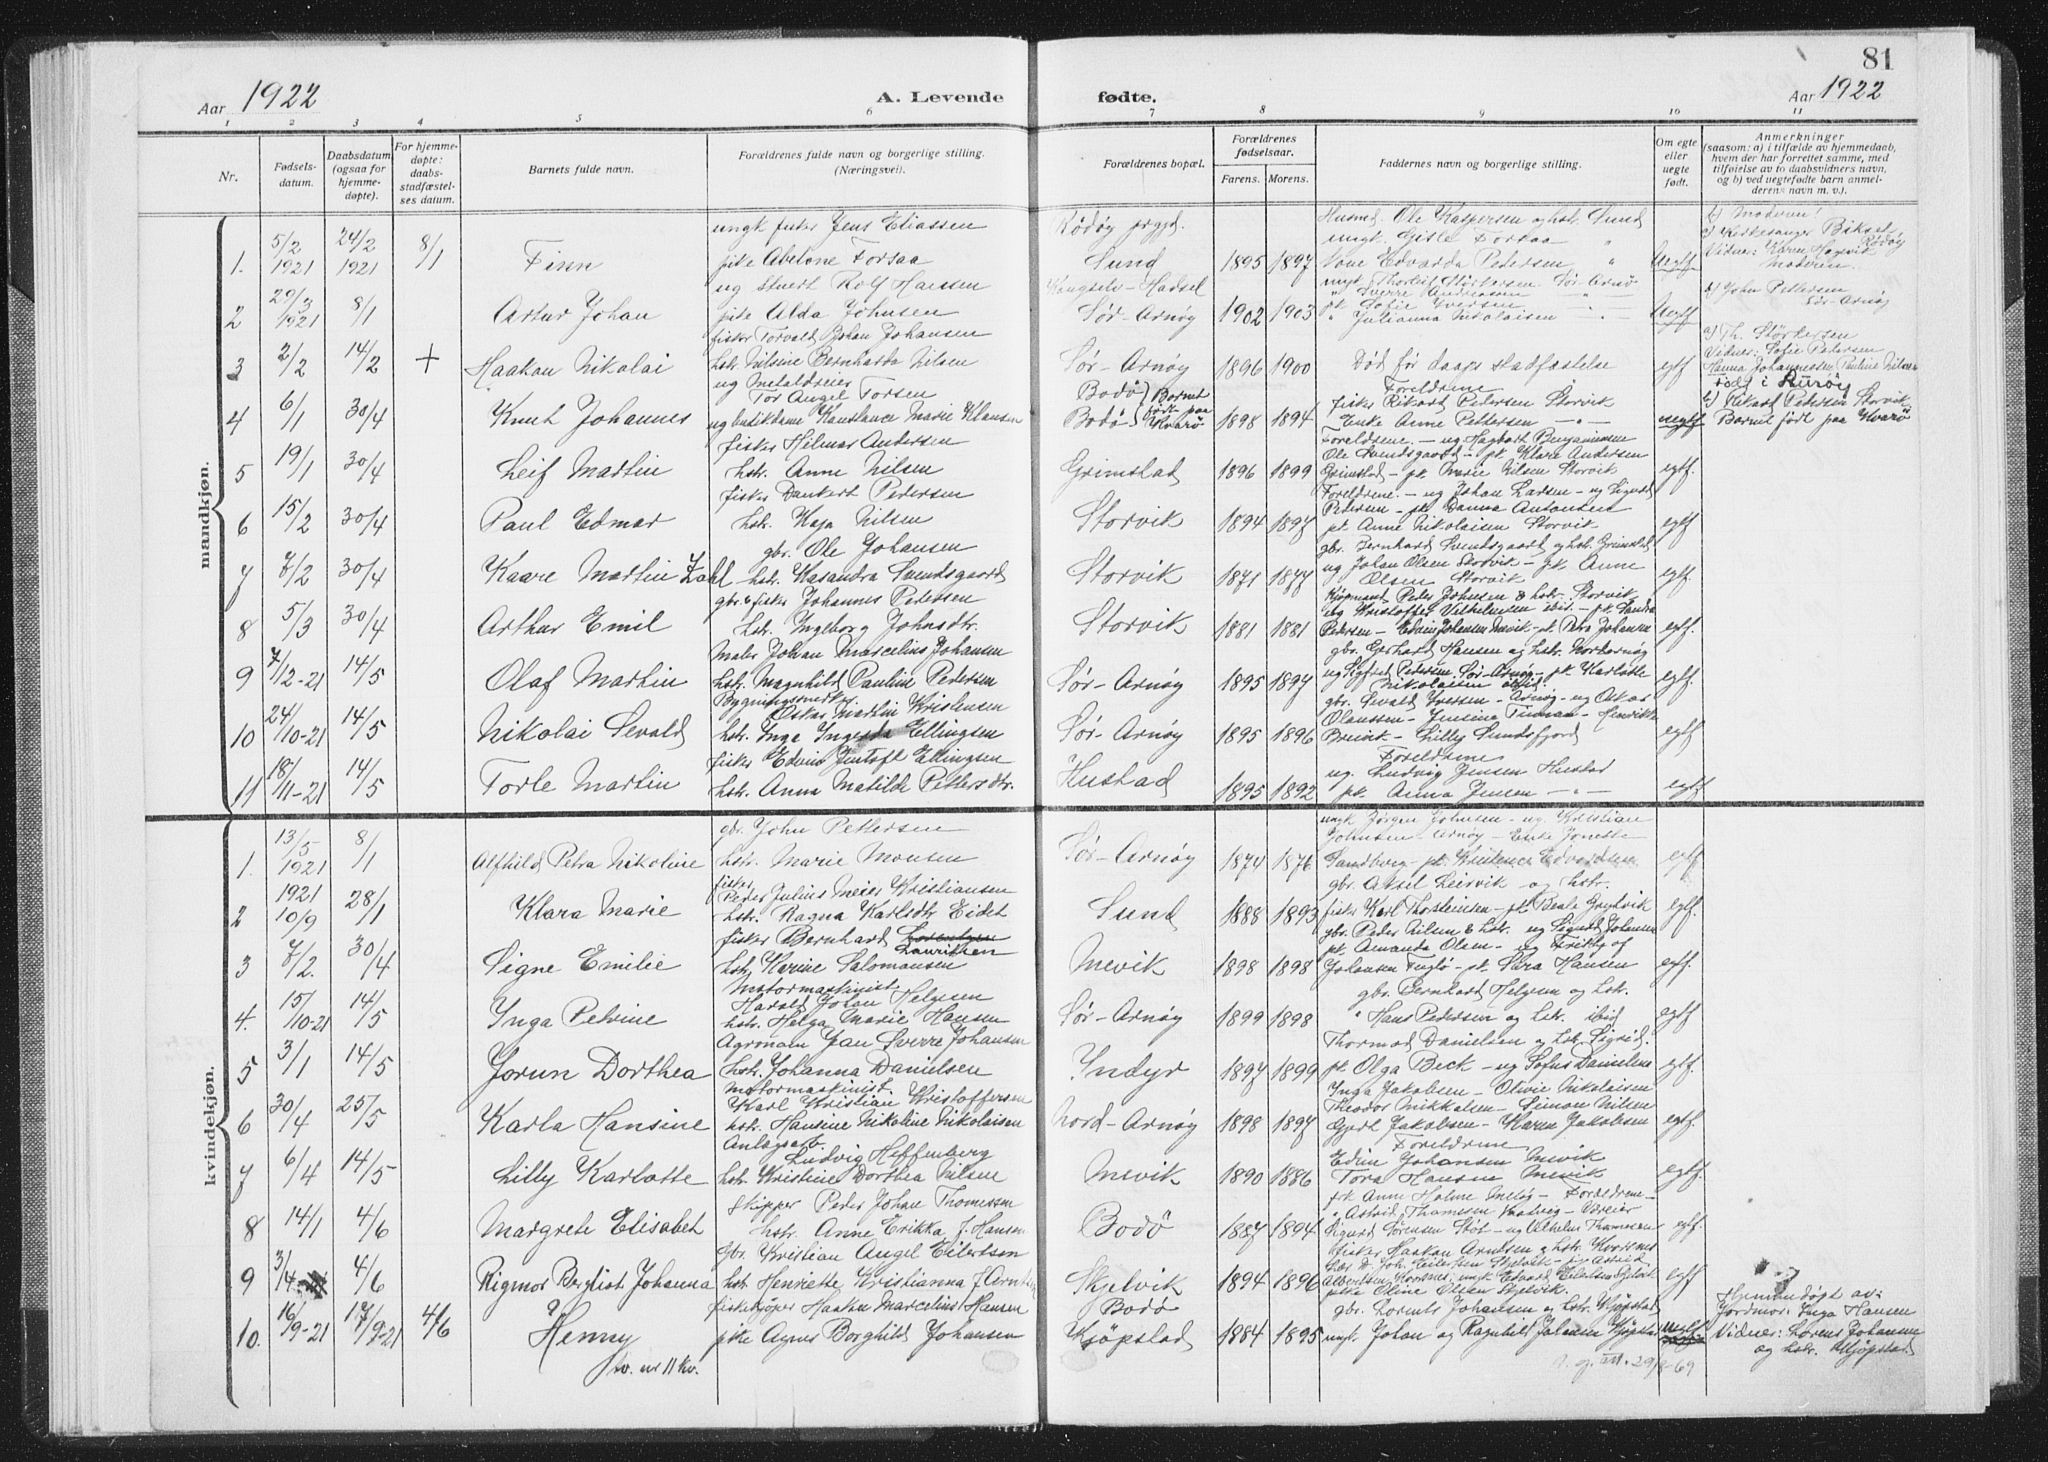 81
Aar 1922
A. Levende fødte.
Aar 1922
1 2 3 4 5 6 7 8 9 10 11
Nr.
Fødselsdatum.
Daabsdatum (ogsaa for hjemmedøpte).
For hjemmedøpte: daabsstadfæstelses datum.
Barnets fulde navn.
Forældrenes fulde navn og borgerlige stilling. (Næringsvei).
Forældrenes bopæl.
Forældrenes fødselsaar.
Farens. Morens.
Faddernes navn og borgerlige stilling.
Om egte eller uegte født.
Anmerkninger (saasom: a) i tilfælde av hjemmedaab, hvem der har forrettet samme, med tilføielse av to daabsvidners navn, og b) ved uegtefødte barn anmelderens navn m. v.).
mandkjøn.
1. 5/2 1921 24/2 1921 8/1 Finn
ungk fisker Jens Eliassen
pike Abelone Forsaa
Rødøy prgjd.
Sund 1895 1897
Husmd. Ole Kaspersen og hstr. Sund
ungk. Gisle Forsaa "
Edvarda Pedersen " Uegtf
b) Moderen!
a) Kirkesanger Biksel, Rødøy
Vidner: Karen Hagevik
Moderen.
2 29/3 1921 8/1 Artur Johan
ug Stuert Rolf Hansen
pike Alda Johnsen
Kongselv-Hadsel
Sør-Arnøy 1902 1903
ungk. Thorleif Størkersen. Sør Arnø
" Sverre Andreassen " -
pk. Sofie Iversen - " -
" Julianna Nikolaisen - " - Uegtf
b) John Pettersen
Sør-Arnøy
3 2/2 14/2 + Haakon Nikolai
fisker Torvald Johan Johansen
hstr. Nilsine Bernharda Nilsen
Sør-Arnøy 1896 1900
Død før daaps stadfæstelse egtf
a) Th. Størkersen
Vidner: Sofie Petersen
Hanna Johannessen Pauline Nilsen
4 6/1 30/4 Knut Johannes
ug Metaldreier
Tor Angel Torsen
ug butikdame Konstance Marie Klausen
Bodø) Barnet
Bodø (født paa Kvarø 1898 1894
Foreldrene
fisker Rikart Petersen Storvik
Enke Anne Pettersen - " - uegtf
født i Lurøy
b) Rikart Petersen Storvik
Barnet født paa Kvarø
5 19/1 30/4 Leif Martin
fisker Hilmar Andersen
hstr. Anne Nilsen
Grimstad 1896 1899
Foreldrene. - ug Hagbart Benjaminsen
Ole Svendsgaard - pk Klara Andersen
Grimstad - pk Marie Nilsen Storvik egtf.
6 15/2 30/4 Paul Edmar
fisker Dankert Pedersen
hstr. Kaja Nilsen
Storvik 1894 1897
Foreldrene. - ug Johan Larsen - ug Sigurd
Petersen - pk Danna Antonsen
pk. Anne Nikolaisen Storvik egtf
7 7/2 30/4 Kaare Martin Zahl
gbr. Ole Johansen
hstr. Kasandra Svendsgaard
Storvik 1871 1877
gbr. Bernhard Svendsgaard og hstr. Grimstad
ug Johan Olsen Storvik - pk Anne
Olsen Storvik egtf.
8 5/3 30/4 Arthur Emil
gbr. & fisker Johannes Petersen
hstr. Ingeborg Johnsdtr.
Storvik 1881 1881
Kjøpmand Peder Johnsen & hstr. Storvik
ug Kristoffer Vilhelmsen ibid. - pk. Sandra
Petersen - Edvin Johansen Mevik - pk. Petra Johansen egtf.
9 7/12-21 14/5 Olaf Martin
Maler Johan Marcelius Johansen
hstr. Magnhild Pauline Pedersen
Sør-Arnøy 1895 1897
gbr. Gerhard Hansen og hstr. Nordarnøy
ug Sigfred Pedersen Sør-Arnøy - pk Karlotte
Nikolaisen ibid. egtf.
10 24/10-21 14/5 Nikolai Sevald
Bygningssnedk.
Oskar Martin Kristensen
hstr. Inga Ingerda Ellingsen
Sør-Arnøy 1895 1896
gbr. Sevald Iversen - Arnøy - ug Oskar
Olaussen - Jensine Tuman - Henrikke
Breivik - Lilly Sundsfjord egtf
11 18/11-21 14/5 Torle Martin
fisker Edvin Jentoft Ellingsen
hstr. Anna Matilde Pettersdtr.
Hustad 1895 1892
Foreldrene
ug. Ludvig Jensen Hustad
pk. Anna Jensen - " - egtf
kvindekjøn.
1. 13/5 1921 8/1 Alfhild Petra Nikoline
gbr. John Pettersen
hstr. Marie Monsen
Sør-Arnøy 1874 1876
ungk Jørgen Johnsen - ug. Kristian
Johnsen - Arnøy - Enke Jonette
Sandberg - pk. Kristence Edvardsen egtf
2 1921 10/9 28/1 Klara Marie
fisker
Peder Julius Meier Kristiansen
hstr. Ragna Karlsdtr Eidet
Sund 1888 1893
gbr. Aksel Leirvik og hstr.
fisker Karl Thorsteinsen - pk Beale Grytvik egtf.
3 7/2. 30/4 Signe Emilie
fisker Bernhard Lorentzen
Lauritsen
hstr. Karine Salomonsen
Mevik 1898 1898
gbr. Peder Nilsen & hstr. ug Sigurd Johansen
pk. Amanda Olsen - ug Fritjof
Johansen Fuglø - pk. Sara Hansen egtf.
4. 15/10-21 14/5 Inga Pelvine
Motormaskinist
Harald Johan Helgesen
hstr. Helga Marie Hansen
Sør-Arnøy 1899 1898
gbr. Bernhard Helgesen og hstr.
" Hans Pedersen og hstr. ibid egtf
5 3/1 14/5 Jorun Dorthea
Agronom Jan Sverre Johansen
hstr. Johanna Danielsen
Indyr 1897 1899
Thormod Danielsen og hstr. Sigrid.
pk. Olga Beck - ug Sofus Danielsen egtf.
6 30/4 25/5 Karla Hansine
Motormaskinist.
Karl Kristian Kristoffersen
hstr. Hansine Nikoline Nikolaisen
Nord-Arnøy 1898 1897
Inga Jakobsen - Otivie Nikolaisen
Theodor Mikkalsen - Simon Nilsen
Gjert Jakobsen - Karen Jakobsen egtf.
7 6/4 14/5 Lilly Karlotte
Anlagsarb.
Ludvig Heffenberg
hstr. Kristine Dorthea Nilsen
Mevik 1890 1886
Foreldrene
Edvin Johansen Mevik
Tora Hansen Mevik egtf.
8 14/1 4/6 Margrete Elisabet
Skipper Peder Johan Thomessen
hstr. Anne Erikka f. Hansen
Bodø 1887 1894
frk. Anne Holme Meløy - Foreldrene -
" Astrid Thomesen
Sigurd Sørensen Støt - ug Vilhelm Thomesen egtf.
9 3/4 4/6 Rigmor Bergliot Johanna
Gbr. Kristian Angel Eilertsen
hstr. Henriette Kristianna f. Arntsen
Skjelvik 1894 1896
fisker Haakon Arntsen & hstr. Kvarsnes
Albertsen Kvarsnes; ungk. Edvard Eilertsen Skjelvik
pike Oline Olsen Skjelvik. egtf
10. 16/9-21 17/9-21 4/6 Henny
fiskekjøper Haakon Marcelius Hansen
pike Agnes Borghild Johansen
Bodø
Kjøpstad 1884 1895
gbr. Lorents Johansen og hstr. Kjøpstad
ungk. Johan og Ragnhild Johansen Kjøpstad uegtf
Hjemmedøpt av:
Jordmor: Inga Hansen
Vidner: Lorens Johansen
og hstr. Kjøpstad
tv. nr 11 kv.